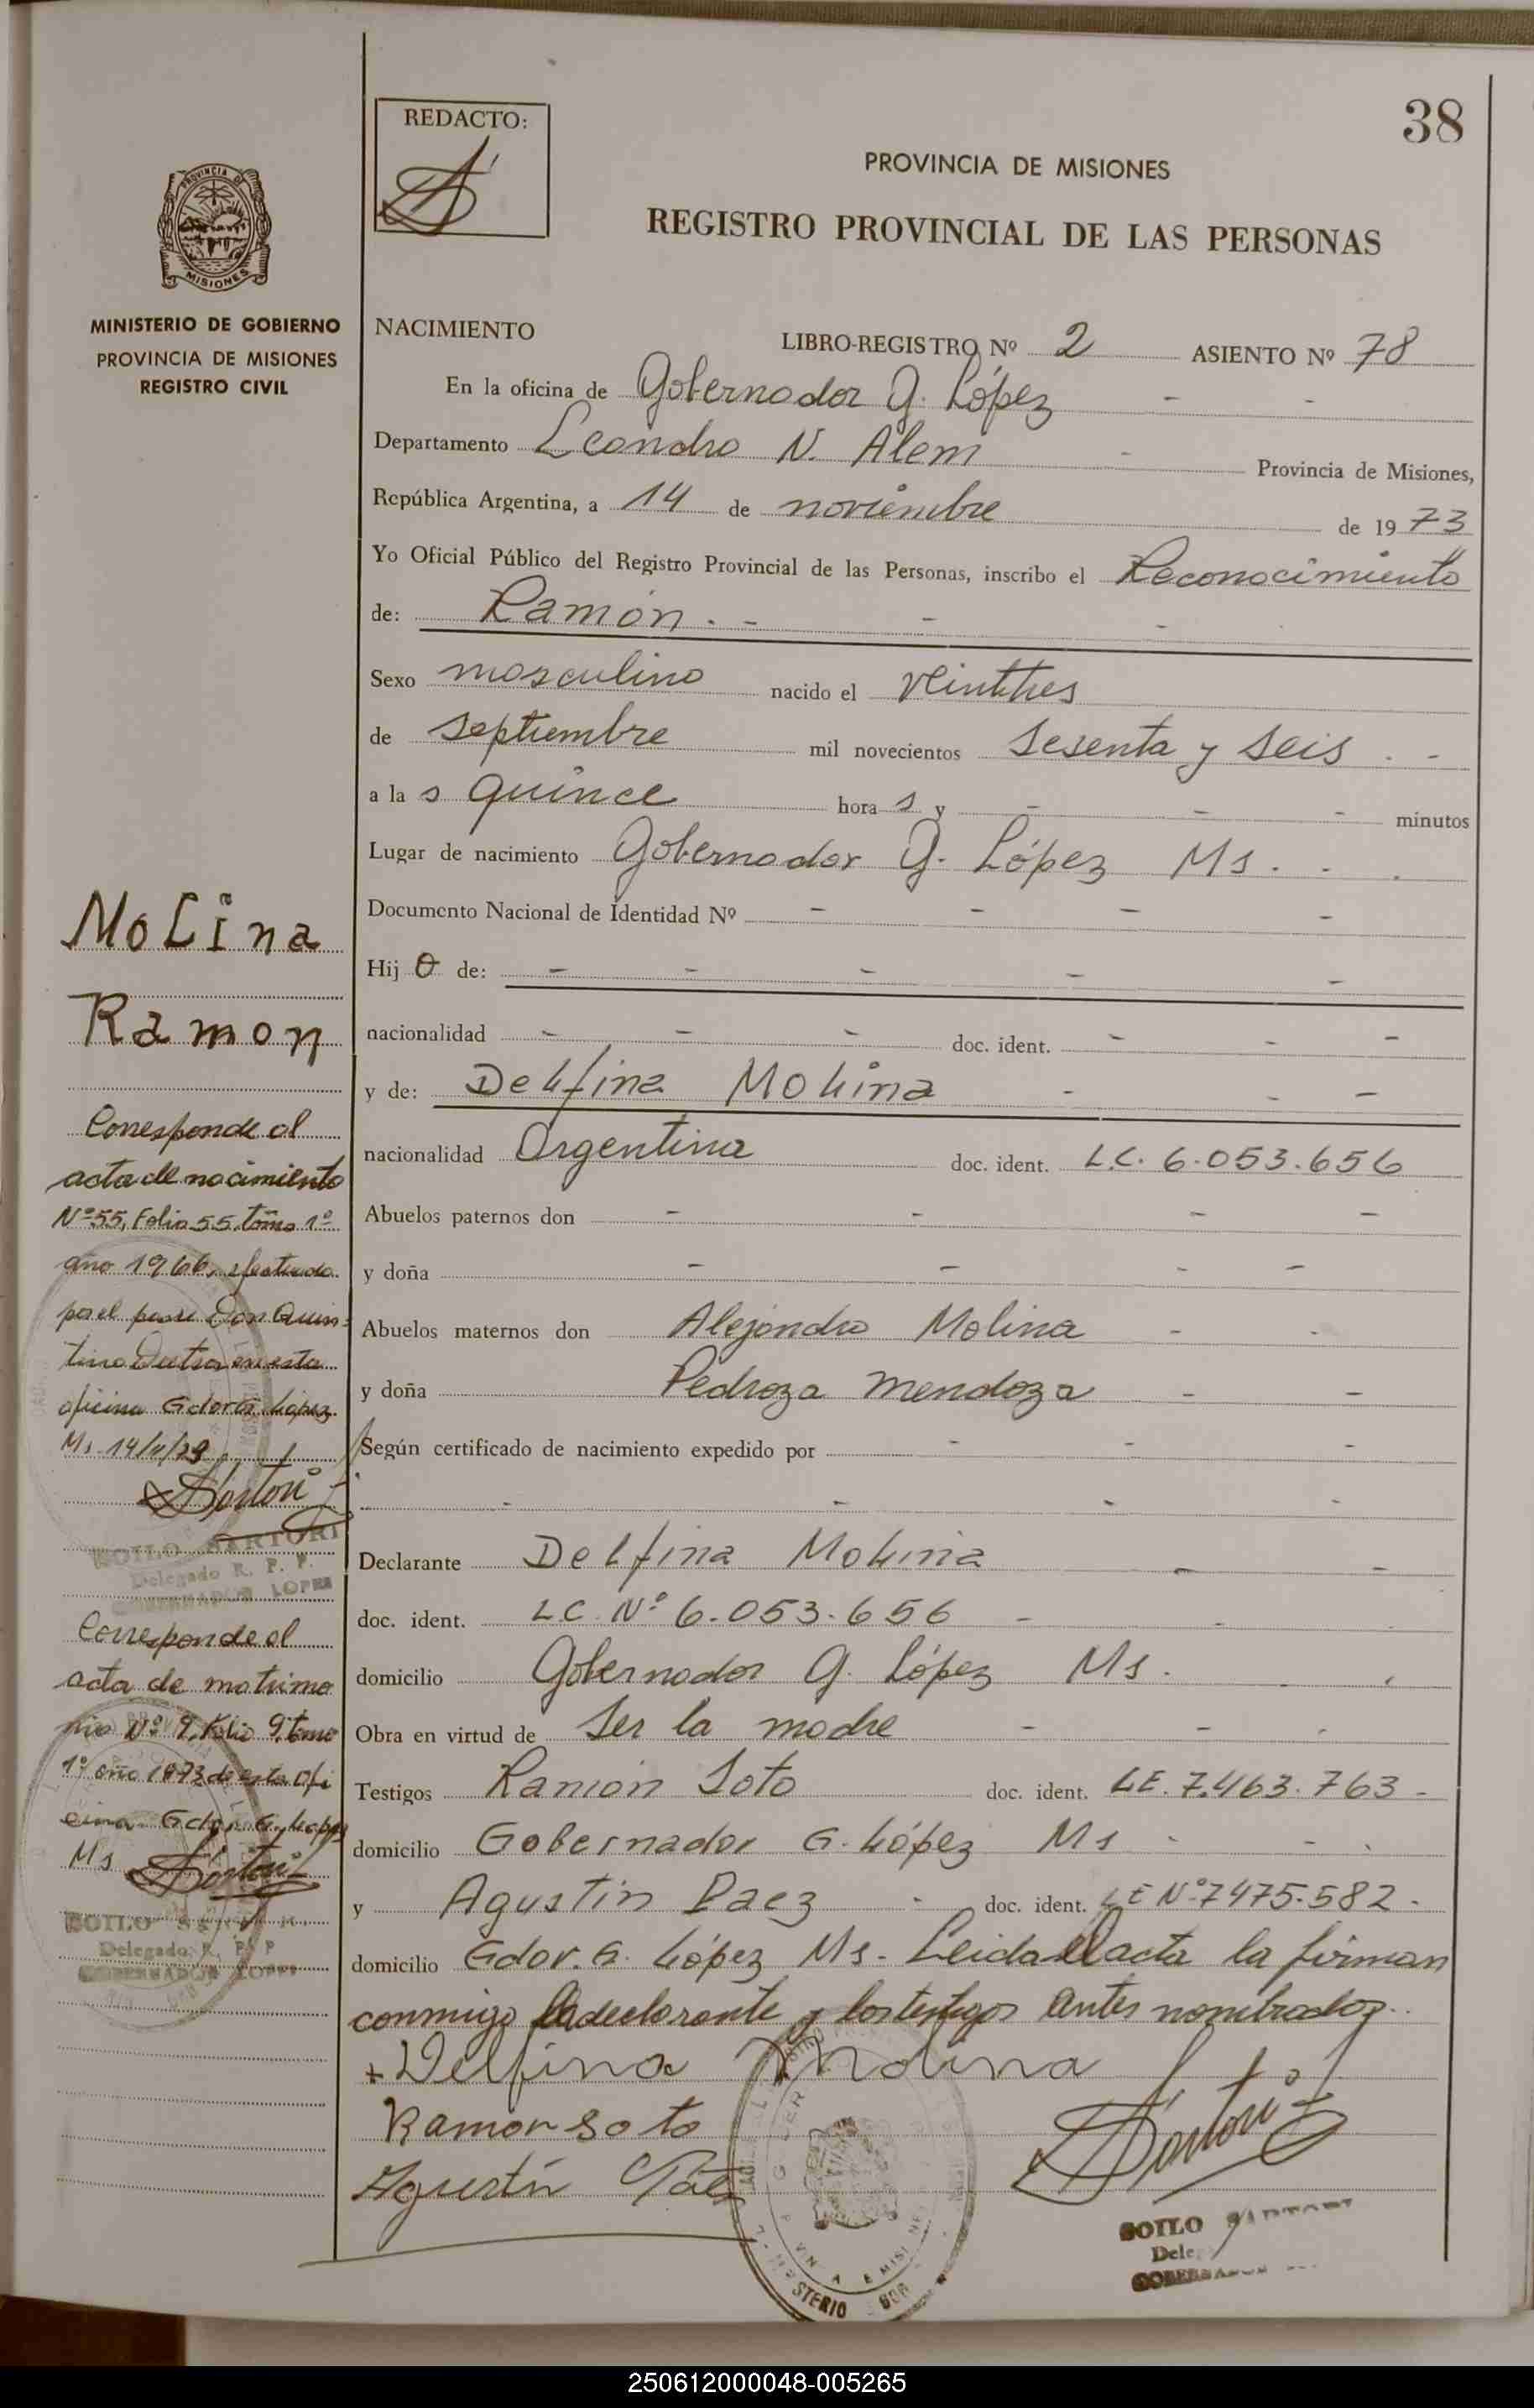 38
REDACTO:
PROVINCIA DE MISIONES
REGISTRO PROVINCIAL DE LAS PERSONAS
PROVINCIA D
MISIONES
MINISTERIO DE GOBIERNO
PROVINCIA DE MISIONES
REGISTRO CIVIL
NACIMIENTO LIBRO-REGISTRO Nº 2 ASIENTO Nº 78
En la oficina de Gobernador G. López - -
Departamento Leandro N. Alem - Provincia de Misiones,
República Argentina, a 14 de noviembre de 1973
Yo Oficial Público del Registro Provincial de las Personas, inscribo el Reconocimiento
de: Ramón. - - -
Sexo masculino nacido el veintitres
de septiembre mil novecientos sesenta y seis . -
a la s quince hora s y - - - minutos
Lugar de nacimiento Gobernador G. López Ms. - .
Documento Nacional de Identidad Nº - - - -
Hij o de: - - - - -
nacionalidad - - - doc. ident. - - -
y de: Delfina Molina - - -
nacionalidad Argentina doc. ident. L.C. 6.053.656
Abuelos paternos don - - - -
y doña - - - -
Abuelos maternos don Alejandro Molina - -
y doña Pedroza Mendoza - -
Según certificado de nacimiento expedido por - - -
- - - -
Declarante Delfina Molina - -
doc. ident. L.C. Nº 6.053.656 - -
domicilio Gobernador G. López Ms. .
Obra en virtud de ser la madre - - .
Testigos Ramón Soto doc. ident. LE. 7.463.763 -
domicilio Gobernador G. López Ms - - .
y Agustín Paez - doc. ident. LE Nº 7475.582 -
domicilio Gdor. G. López Ms - Leida el acta la firman
conmigo la declarante y los testigos antes nombrados.
+ Delfina Molina
Ramon Soto
Agustín Páez
Sartori
ZOILO SARTORI
Dele
GOBERNADOR
Molina
Ramon
Corresponde al
acta de nacimiento
Nº 55, Folio 55 tomo 1º
año 1966, efectuado
por el padre Don Quin-
tino Dutra en esta
oficina Gdor G. López
Ms. 14/11/73
Sartori
ZOILO SARTORI
Delegado R. P. P.
GOBERNADOR LOPEZ
Corresponde al
acta de matrimo
nio Nº 9, Folio 9, tomo
1º año 1973 de esta ofi
cina Gdor G. López
Ms
Sartori
ZOILO SARTORI
Delegado R. P. P
GOBERNADOR LOPEZ
250612000048-005265